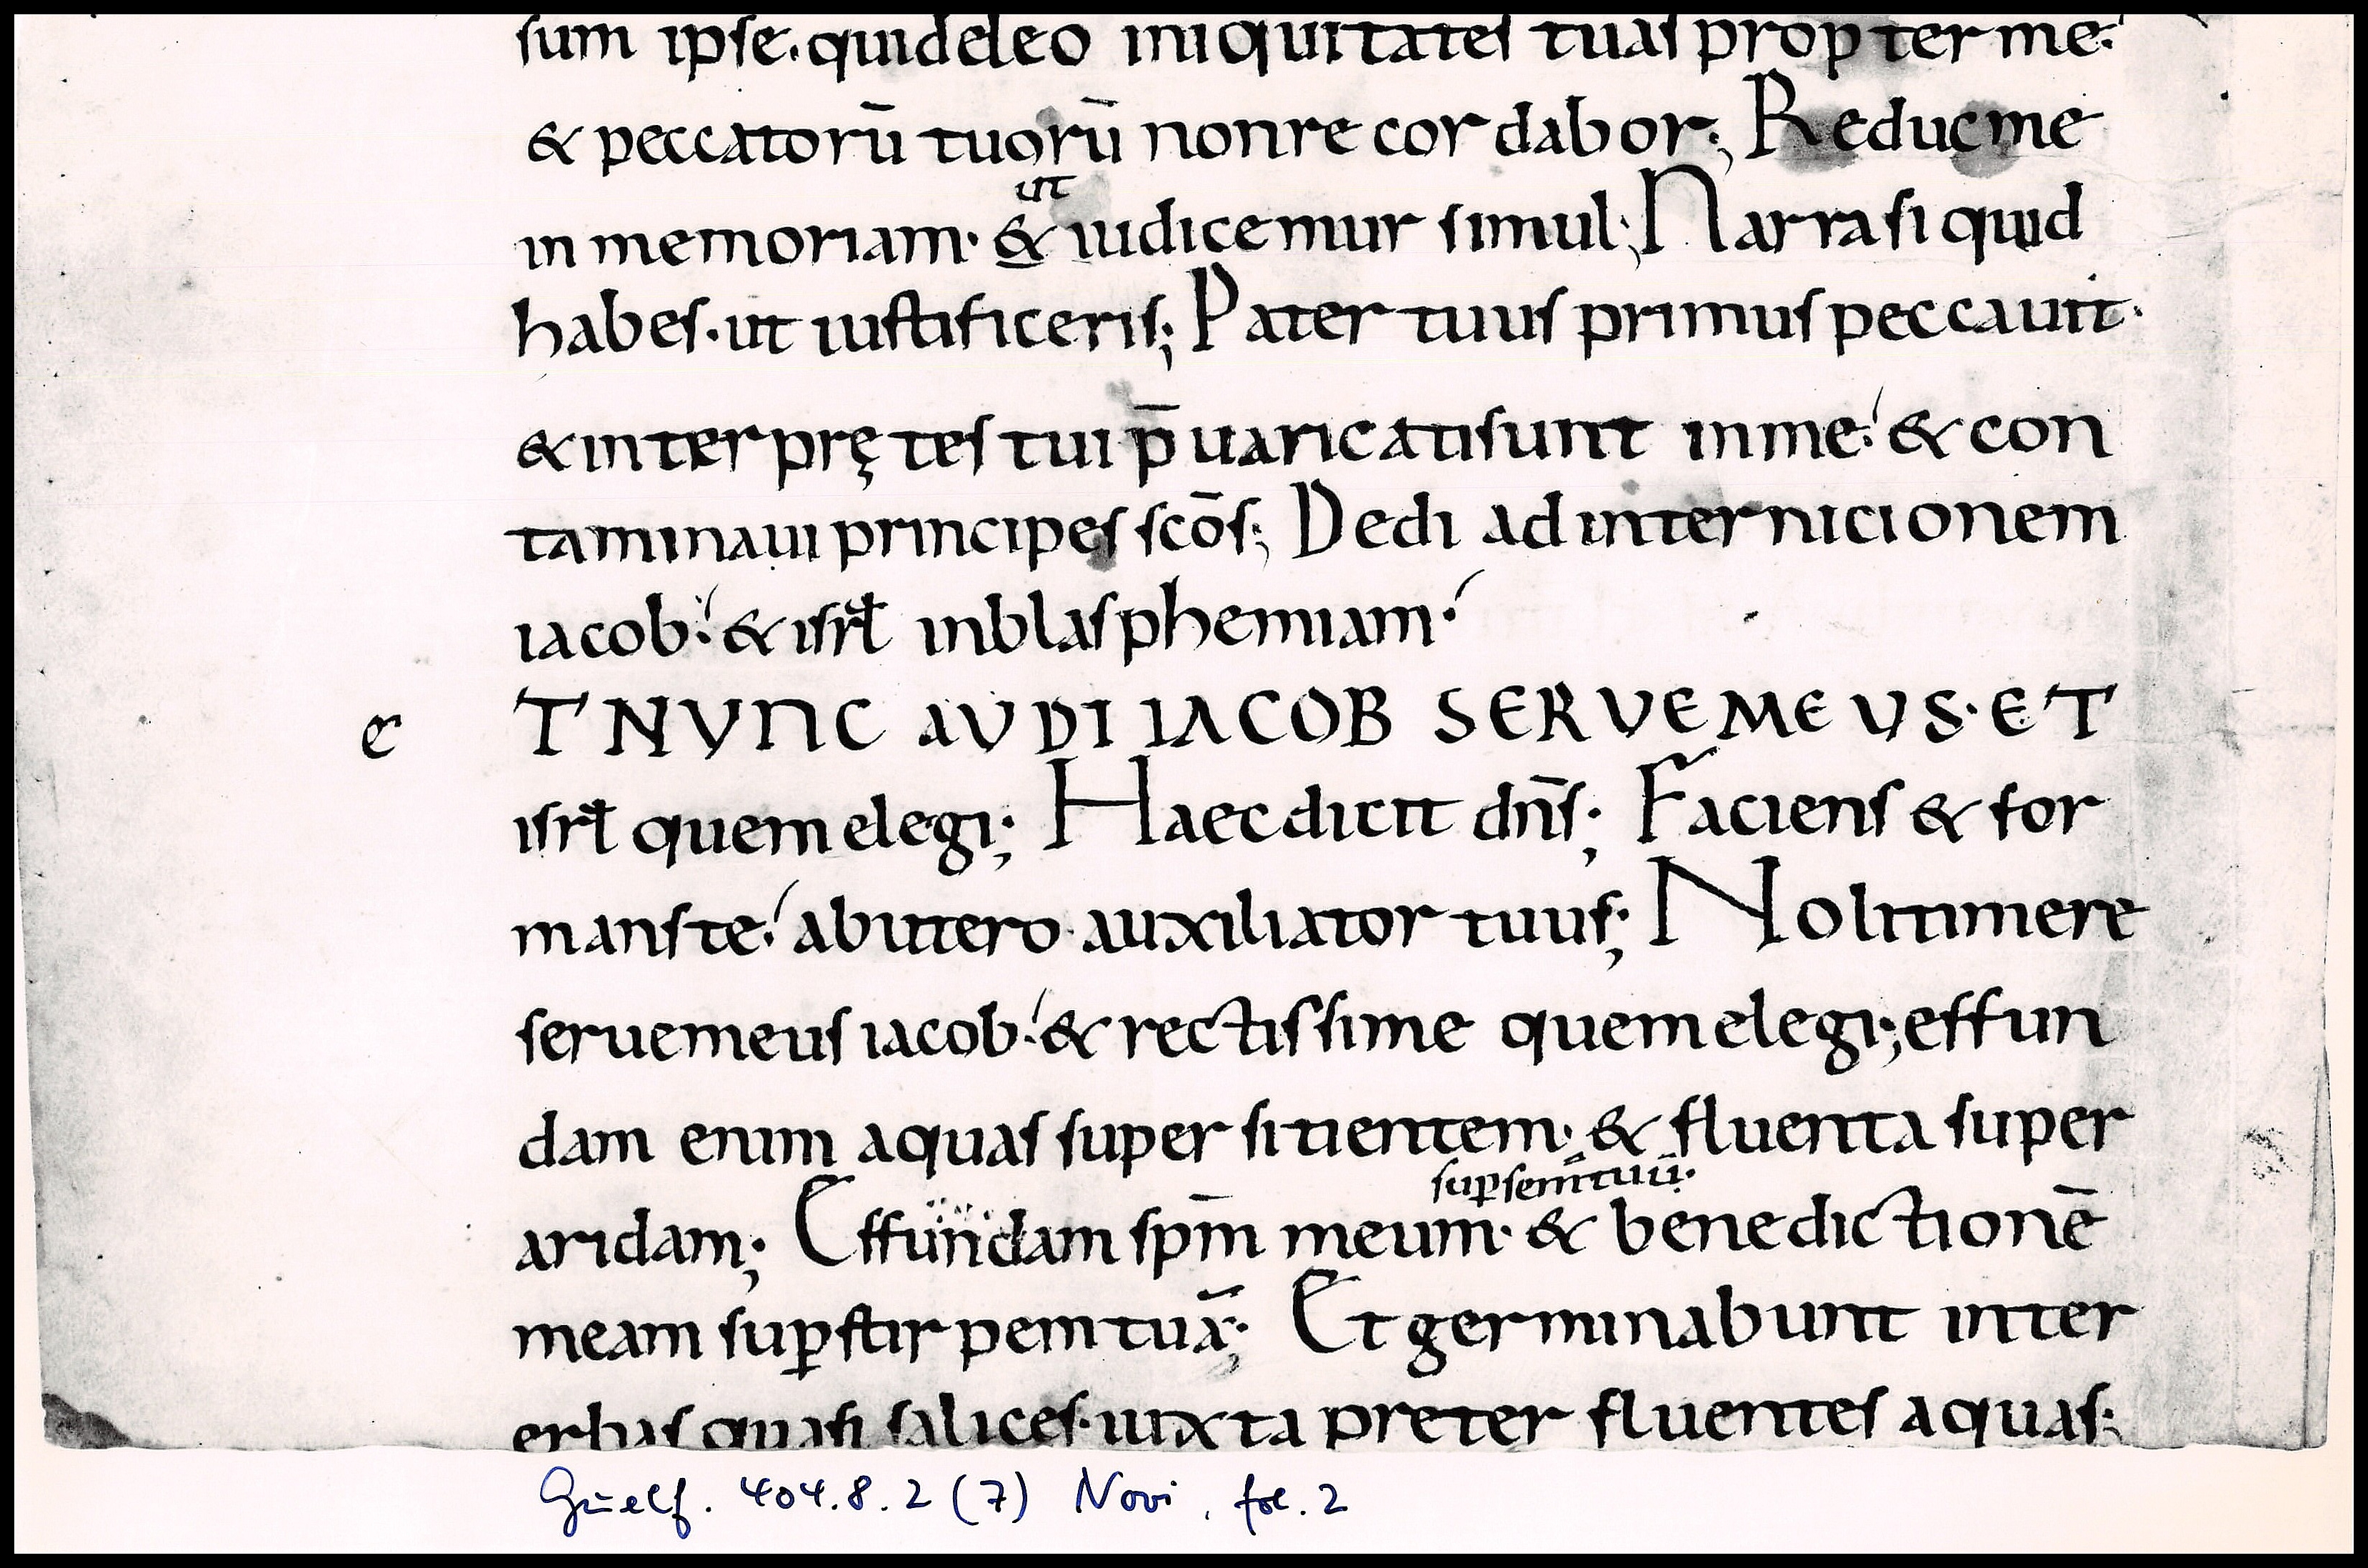 sum ipse. qui deleo iniquitates tuas propter me:
& peccatorū tuorū non recordabor; Reduc me
ut
in memoriam· & iudicemur simul; Narra si quid
habes· ut iustificeris; Pater tuus primus peccauit·
& interprętes tui p̄uaricati sunt in me: & con
taminaui principes scōs; Dedi ad internicionem
iacob: & isrł in blasphemiam·
e T NUNC AUDI IACOB SERVE MEUS· ET
isrł quem elegi; Haec dicit dn̄s; Faciens & for
mans te: ab utero auxiliator tuus; Noli timere
serue meus iacob: & rectissime quem elegi; effun
dam enim aquas super sitientem· & fluenta super
suꝑ semen tuū·
aridam; Effundam spm̄ meum· & benedictionē
meam suꝑ stirpem tuā; Et germinabunt inter
erbas quasi salices· iuxta preter fluentes aquas;
Guelf. 404.8.2 (7) Novi, fol. 2